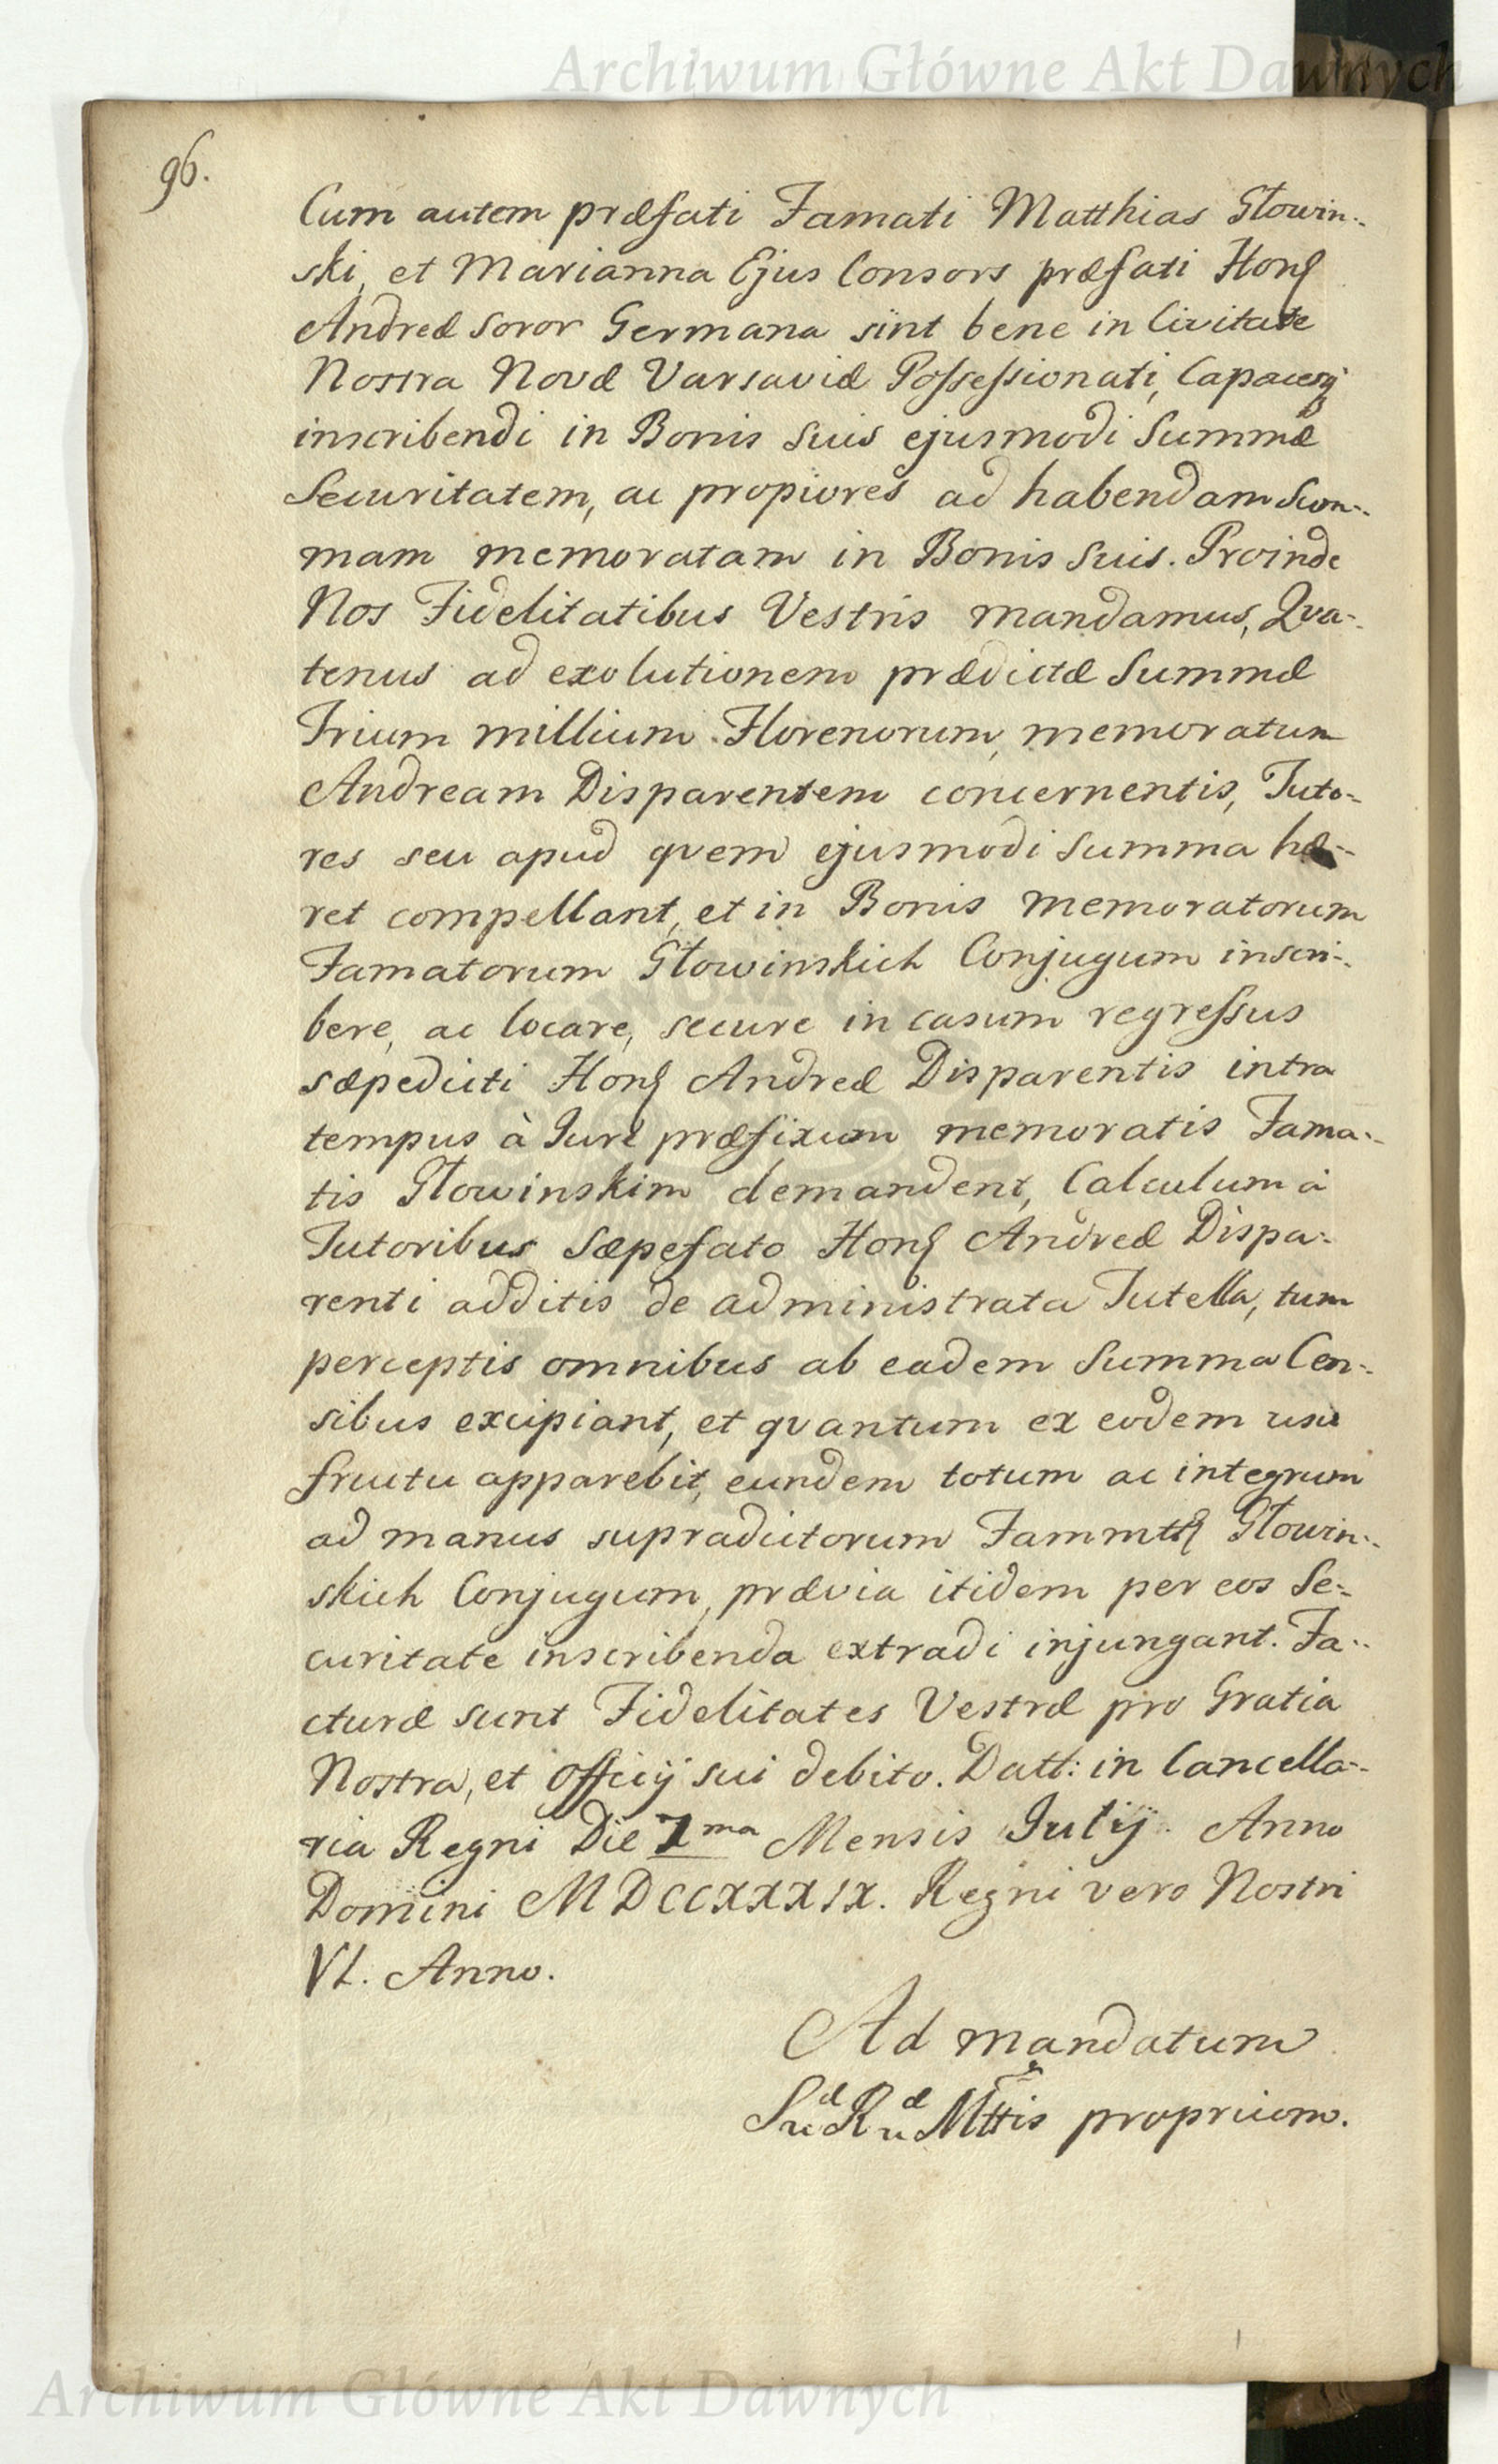 Archiwum Główne Akt Dawnych
96.
Cum autem præfati Famati Matthias Głowin-
ski, et Marianna Ejus Consors præfati Hon
Andreæ Soror Germana sint bene in Civitate
Nostra Novæ Varsaviæ Possessionati, Capacesq
inscribendi in Bonis Suis ejusmodi Summæ
Securitatem, ac propiores ad habendam Sum-
mam memoratam in Bonis Suis. Proinde
Nos Fidelitatibus Vestris mandamus, Qva-
tenus ad exolutionem prædictæ Summæ
Trium millium Florenorum, memoratum
Andream Disparentem concernentis, Tuto-
res seu apud qvem ejusmodi Summa hæ-
ret compellant, et in Bonis memoratorum
Famatorum Głowinskich Conjugum inscri-
bere, ac locare, secure in casum regressus
sæpedicti Hon Andreæ Disparentis intra
tempus à Jure præfixum memoratis Fama-
tis Głowinskim demandent, Calculum à
Tutoribus Sæpefato Hon Andreæ Dispa-
renti additis de administrata Tutella, tum
perceptis omnibus ab eadem Summa Cen-
sibus excipiant, et qvantum ex eodem usu
fructu apparebit, eundem totum ac integrum
ad manus supradictorum Fammtt Głowin-
skich Conjugum, prævia itidem per eos Se-
curitate inscribenda extradi injungant. Fa-
cturæ sunt Fidelitates Vestræ pro Gratia
Nostra, et Officij sui debito. Datt: in Cancella-
ria Regni Die 7ma Mensis Julij. Anno
Domini MDCCXXXIX. Regni vero Nostri
VI. Anno.
Ad mandatum
Suæ Ruæ Mttis proprium.
Archiwum Główne Akt Dawnych